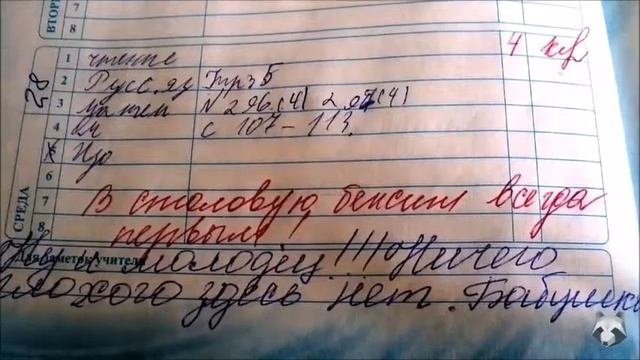 ВТОРНИК
7
8
28
1 чтение 4
2 Русс. яз Упр 5
3 матем №296 (4) 297 (4)
4 с 107-113
Изо
6
СРЕДА
7 В столовую бежит всегда
8 первым!
Для заметок учителя
Ну и молодец!!! Ничего
плохого здесь нет. Бабушка